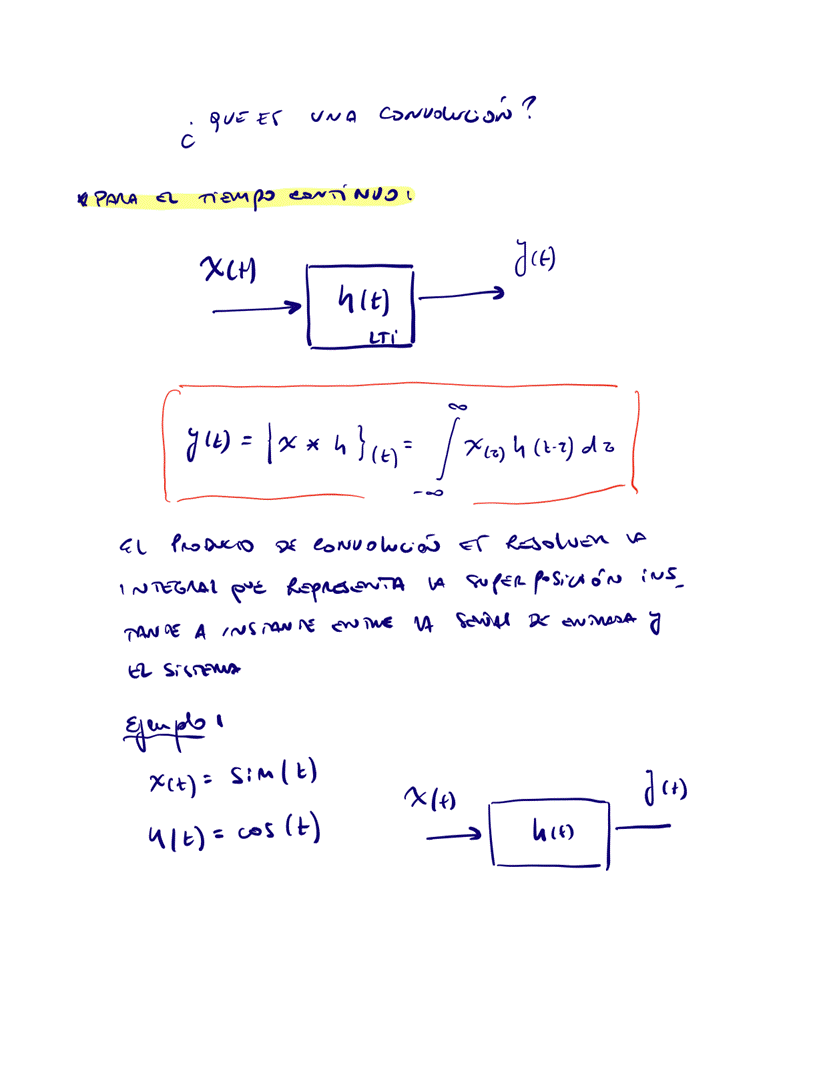 ¿QUE ES UNA CONVOLUCIÓN?
* PARA EL TIEMPO CONTÍNUO:
x(t)
y(t)
h(t)
LTi
y(t) = {x * h}(t) = ∫_{-∞}^{∞} x(τ) h(t-τ) dτ
EL PRODUCTO DE CONVOLUCIÓN ES RESOLVER LA
INTEGRAL QUE REPRESENTA LA SUPERPOSICIÓN INS_
TANTE A INSTANTE ENTRE LA SEÑAL DE ENTRADA Y
EL SISTEMA
Ejemplo:
x(t) = sin(t)
h(t) = cos(t)
x(t)
y(t)
h(t)